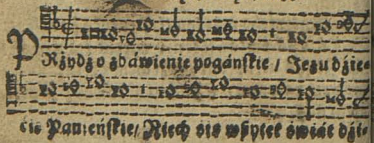 PRzydź o zbáwienie pogáńskie / Jezu dźie-
ćię Pánieńskie / Niech się wszytek świát dźi-